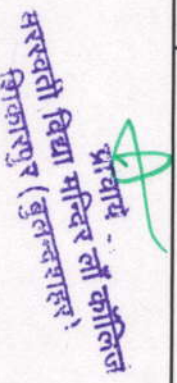 प्राचार्य -
सरस्वती विद्या मन्दिर लॉ कॉलिज
शिकारपुर (बुलन्दशहर)